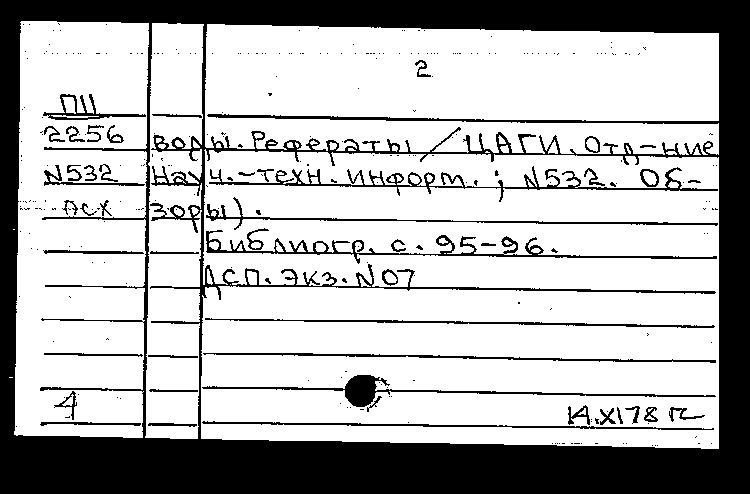 2
П11
2256 воды. Рефераты / ЦАГИ. Отд-ние
N532 науч.-техн. информ. ; N532. Об-
дсх зоры).
Библиогр. с. 95-96.
ДСП. Экз. N07
4 14.XI78 г